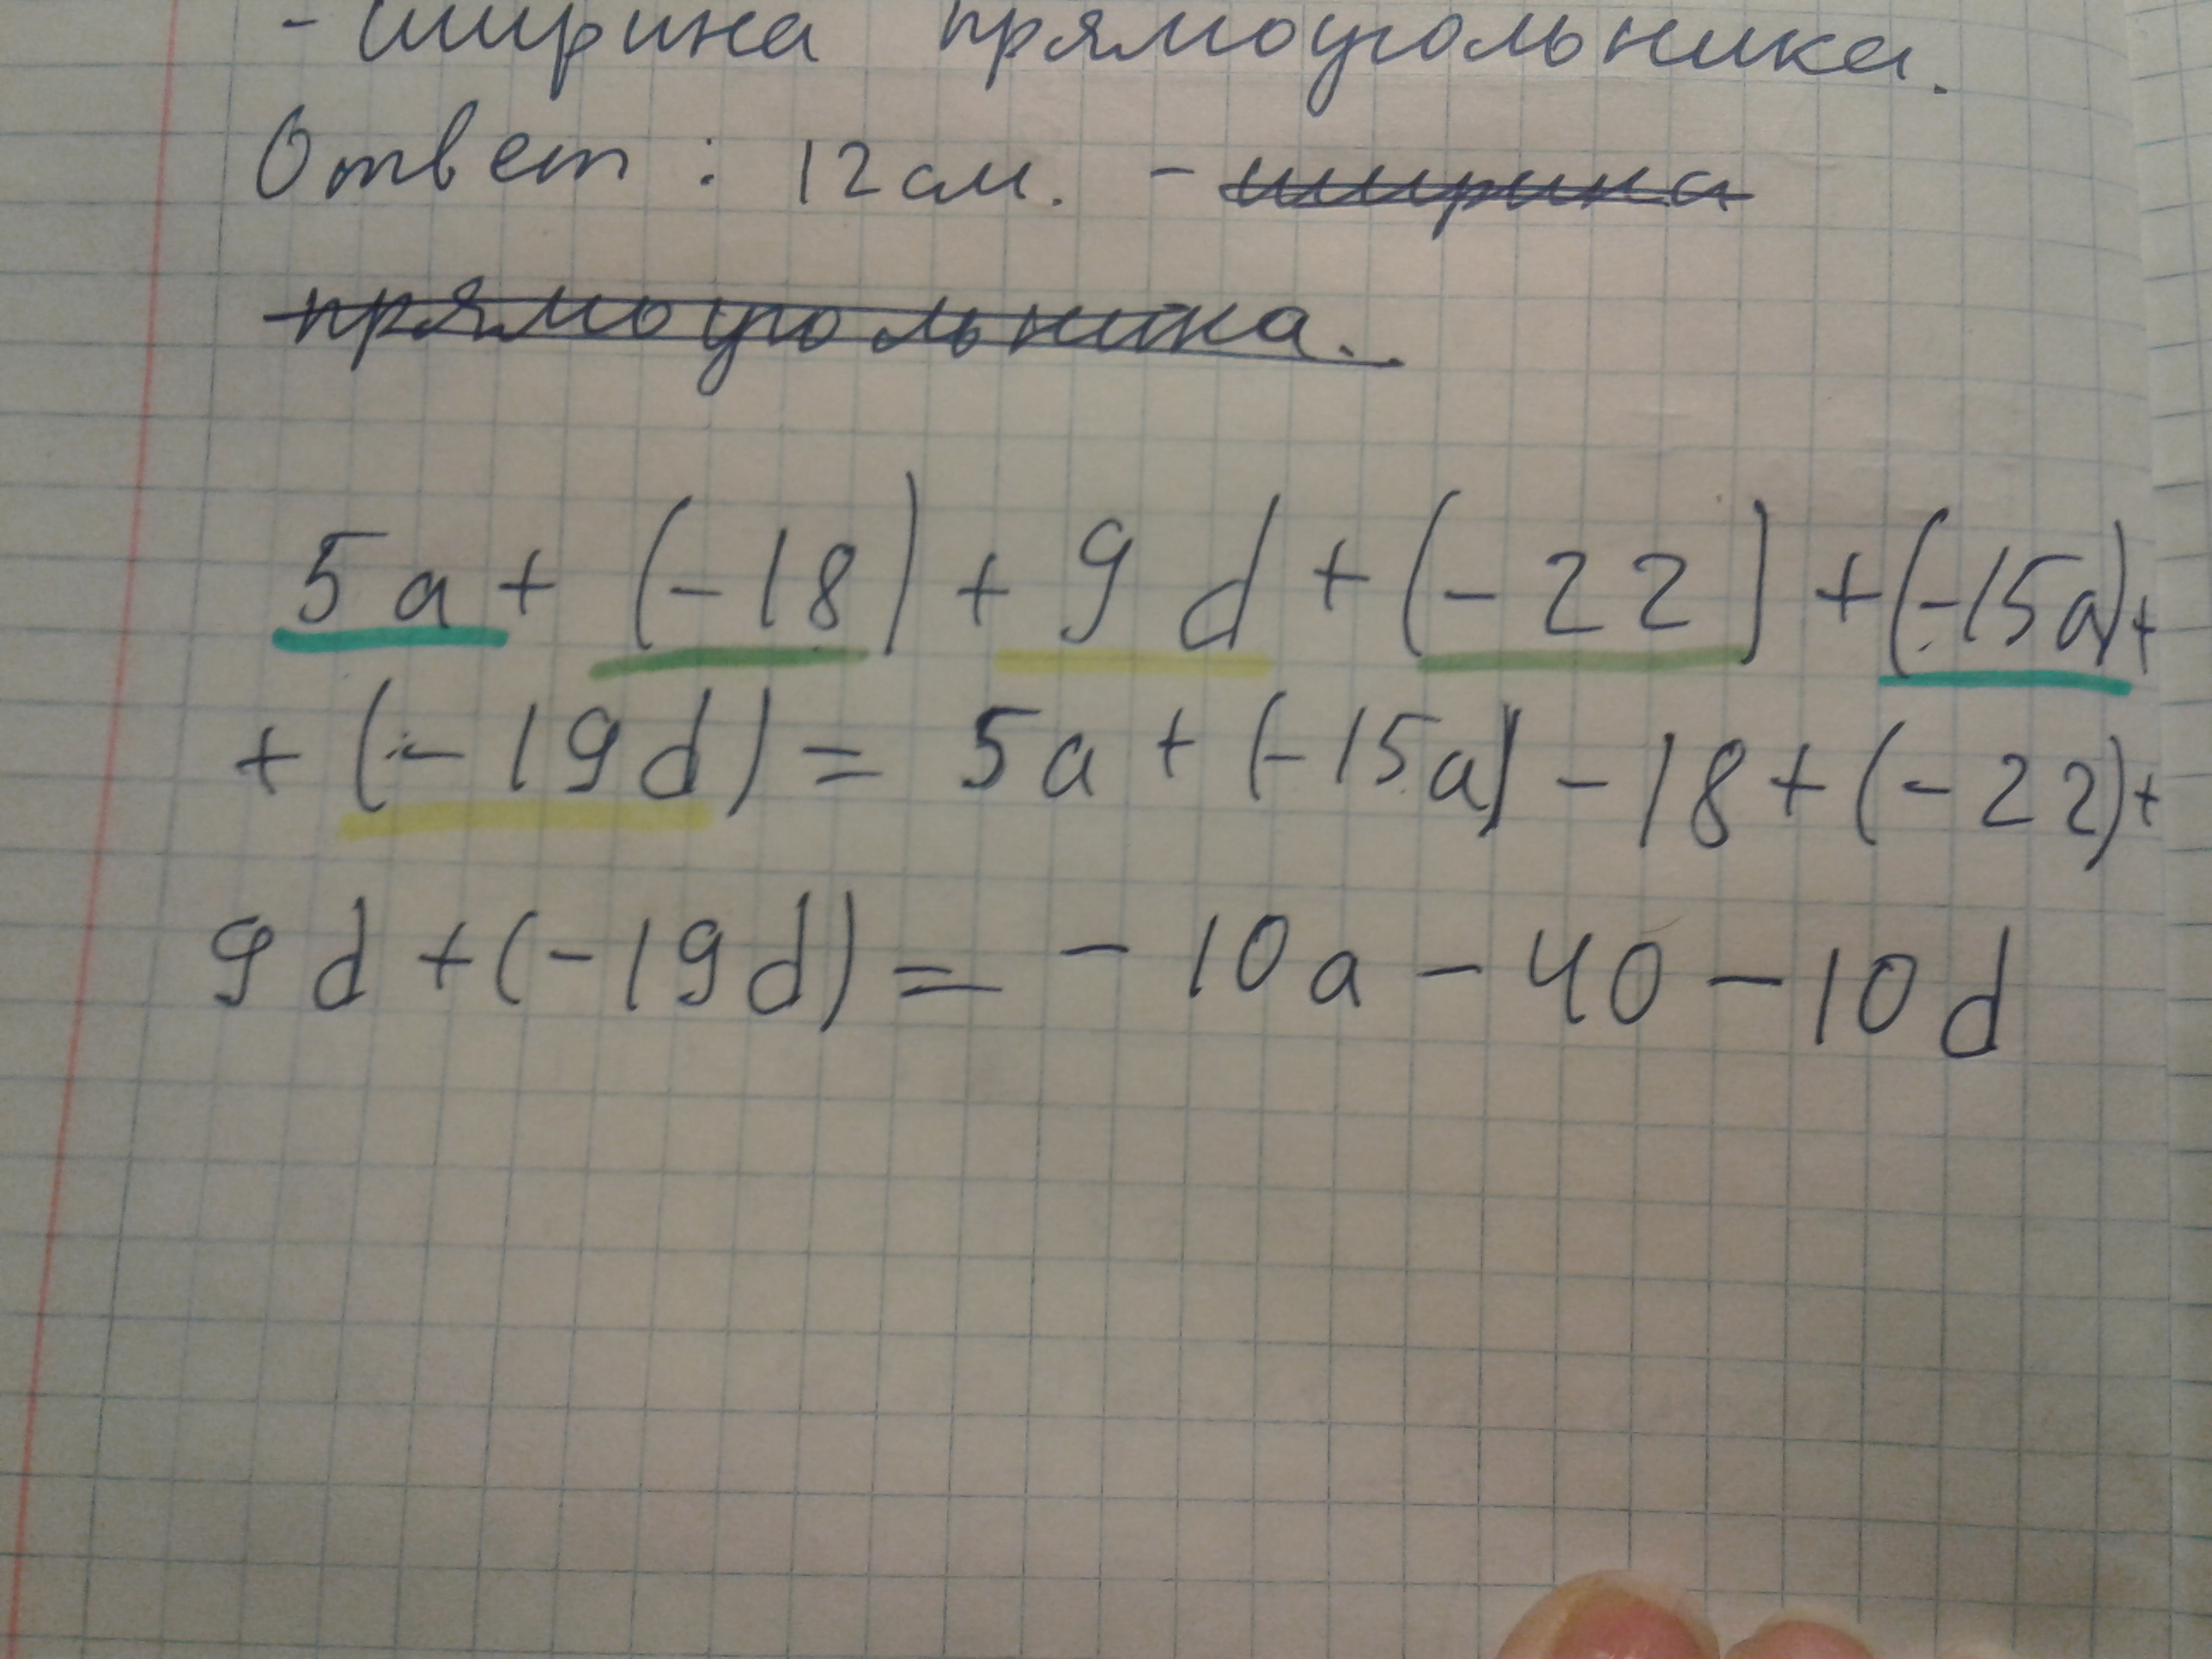 - ширина прямоугольника.
Ответ : 12 см. - ширина
прямоугольника.
5a + (-18) + 9d + (-22) + (-15a) +
+ (-19d) = 5a + (-15a) - 18 + (-22) +
9d + (-19d) = - 10a - 40 - 10d